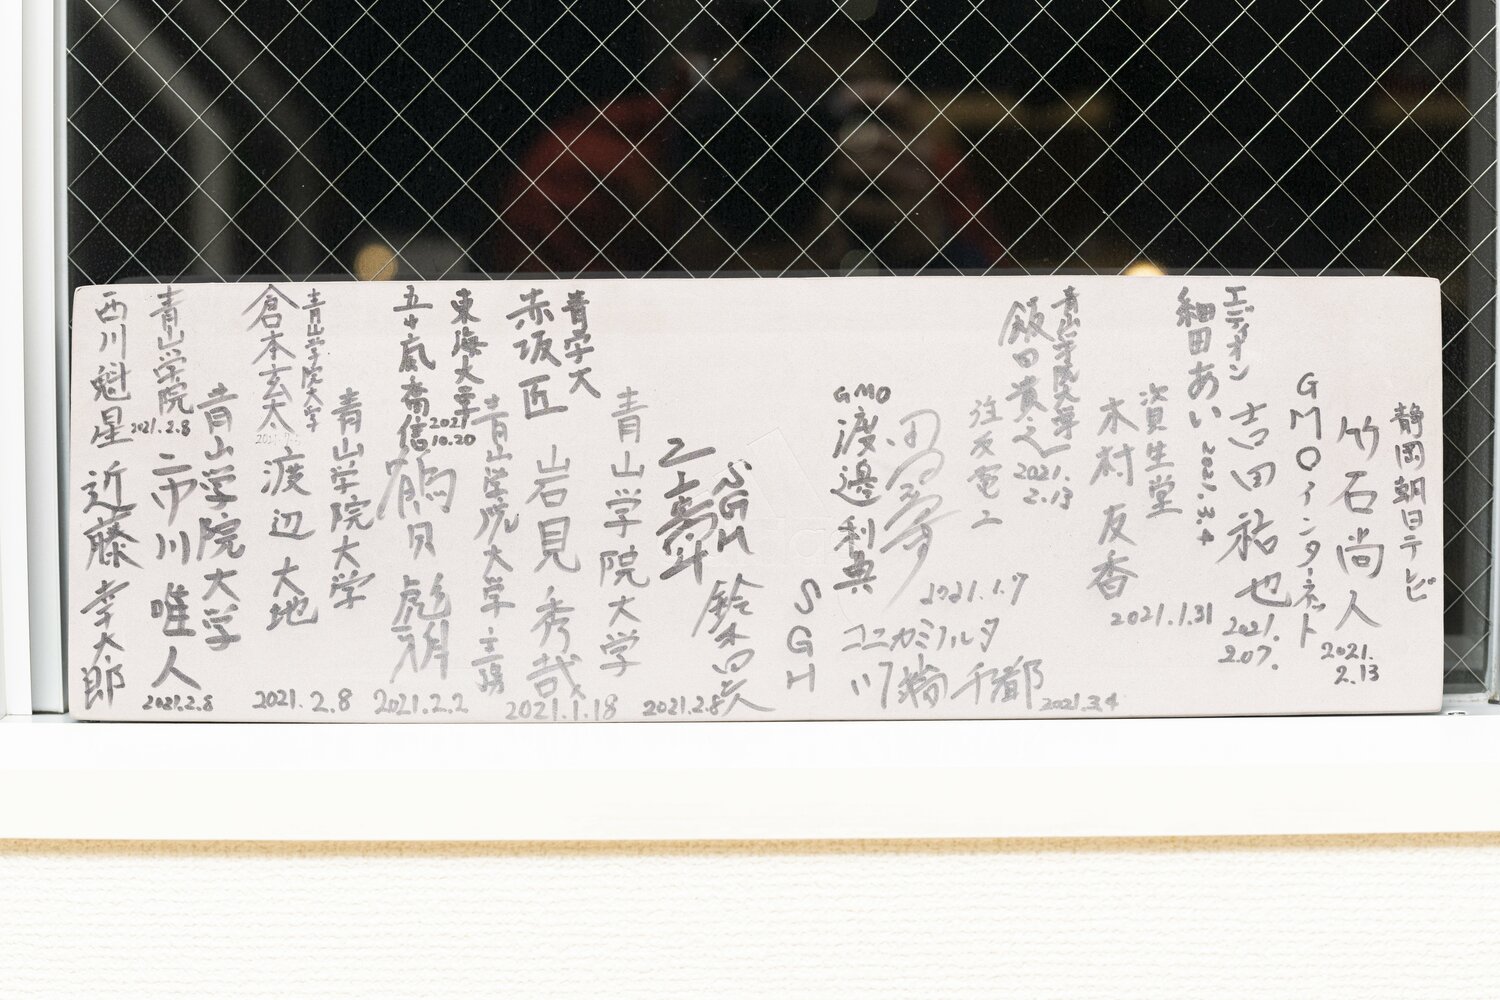 静岡朝日テレビ
竹石尚人
2021.
2.13
GMOインターネット
吉田祐也
2021.
2.07.
エディオン
細田あい
2021.3.4
資生堂
木村友香
2021.1.31
青山学院大学
飯田貴之
2021.
2.13
住友電工
田村
2021.1.7
コニカミノルタ
川口
2021.3.4
GMO
渡邉利典
SGH
SGH
鈴木
2021.2.8
青学大
赤坂匠
青山学院大学
岩見秀哉
2021.1.18
東海大学
五十嵐喬信
2021
10.20
青山学院大学 主務
2021.2.2
青山学院大学
倉本玄太
青山学院大学
渡辺大地
2021.2.8
青山学院
西川魁星
2021.2.8
青山学院大学
市川唯人
近藤幸太郎
2021.2.8